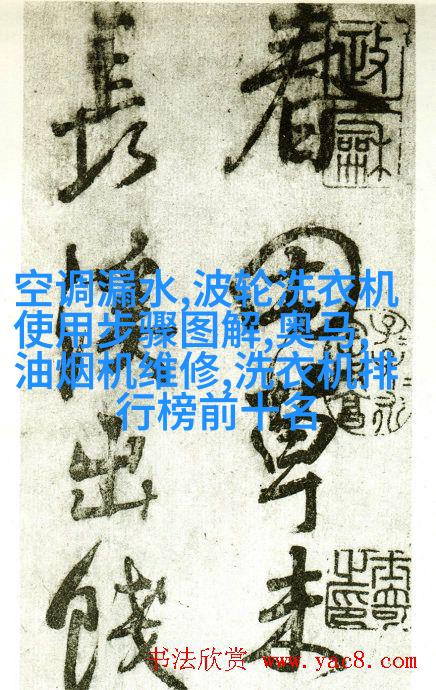 春
草未
長
出
政龢
空调漏水,波轮洗衣机
使用步骤图解,奥马,
油烟机维修,洗衣机排
行榜前十名
书法欣赏 www.yac8.com